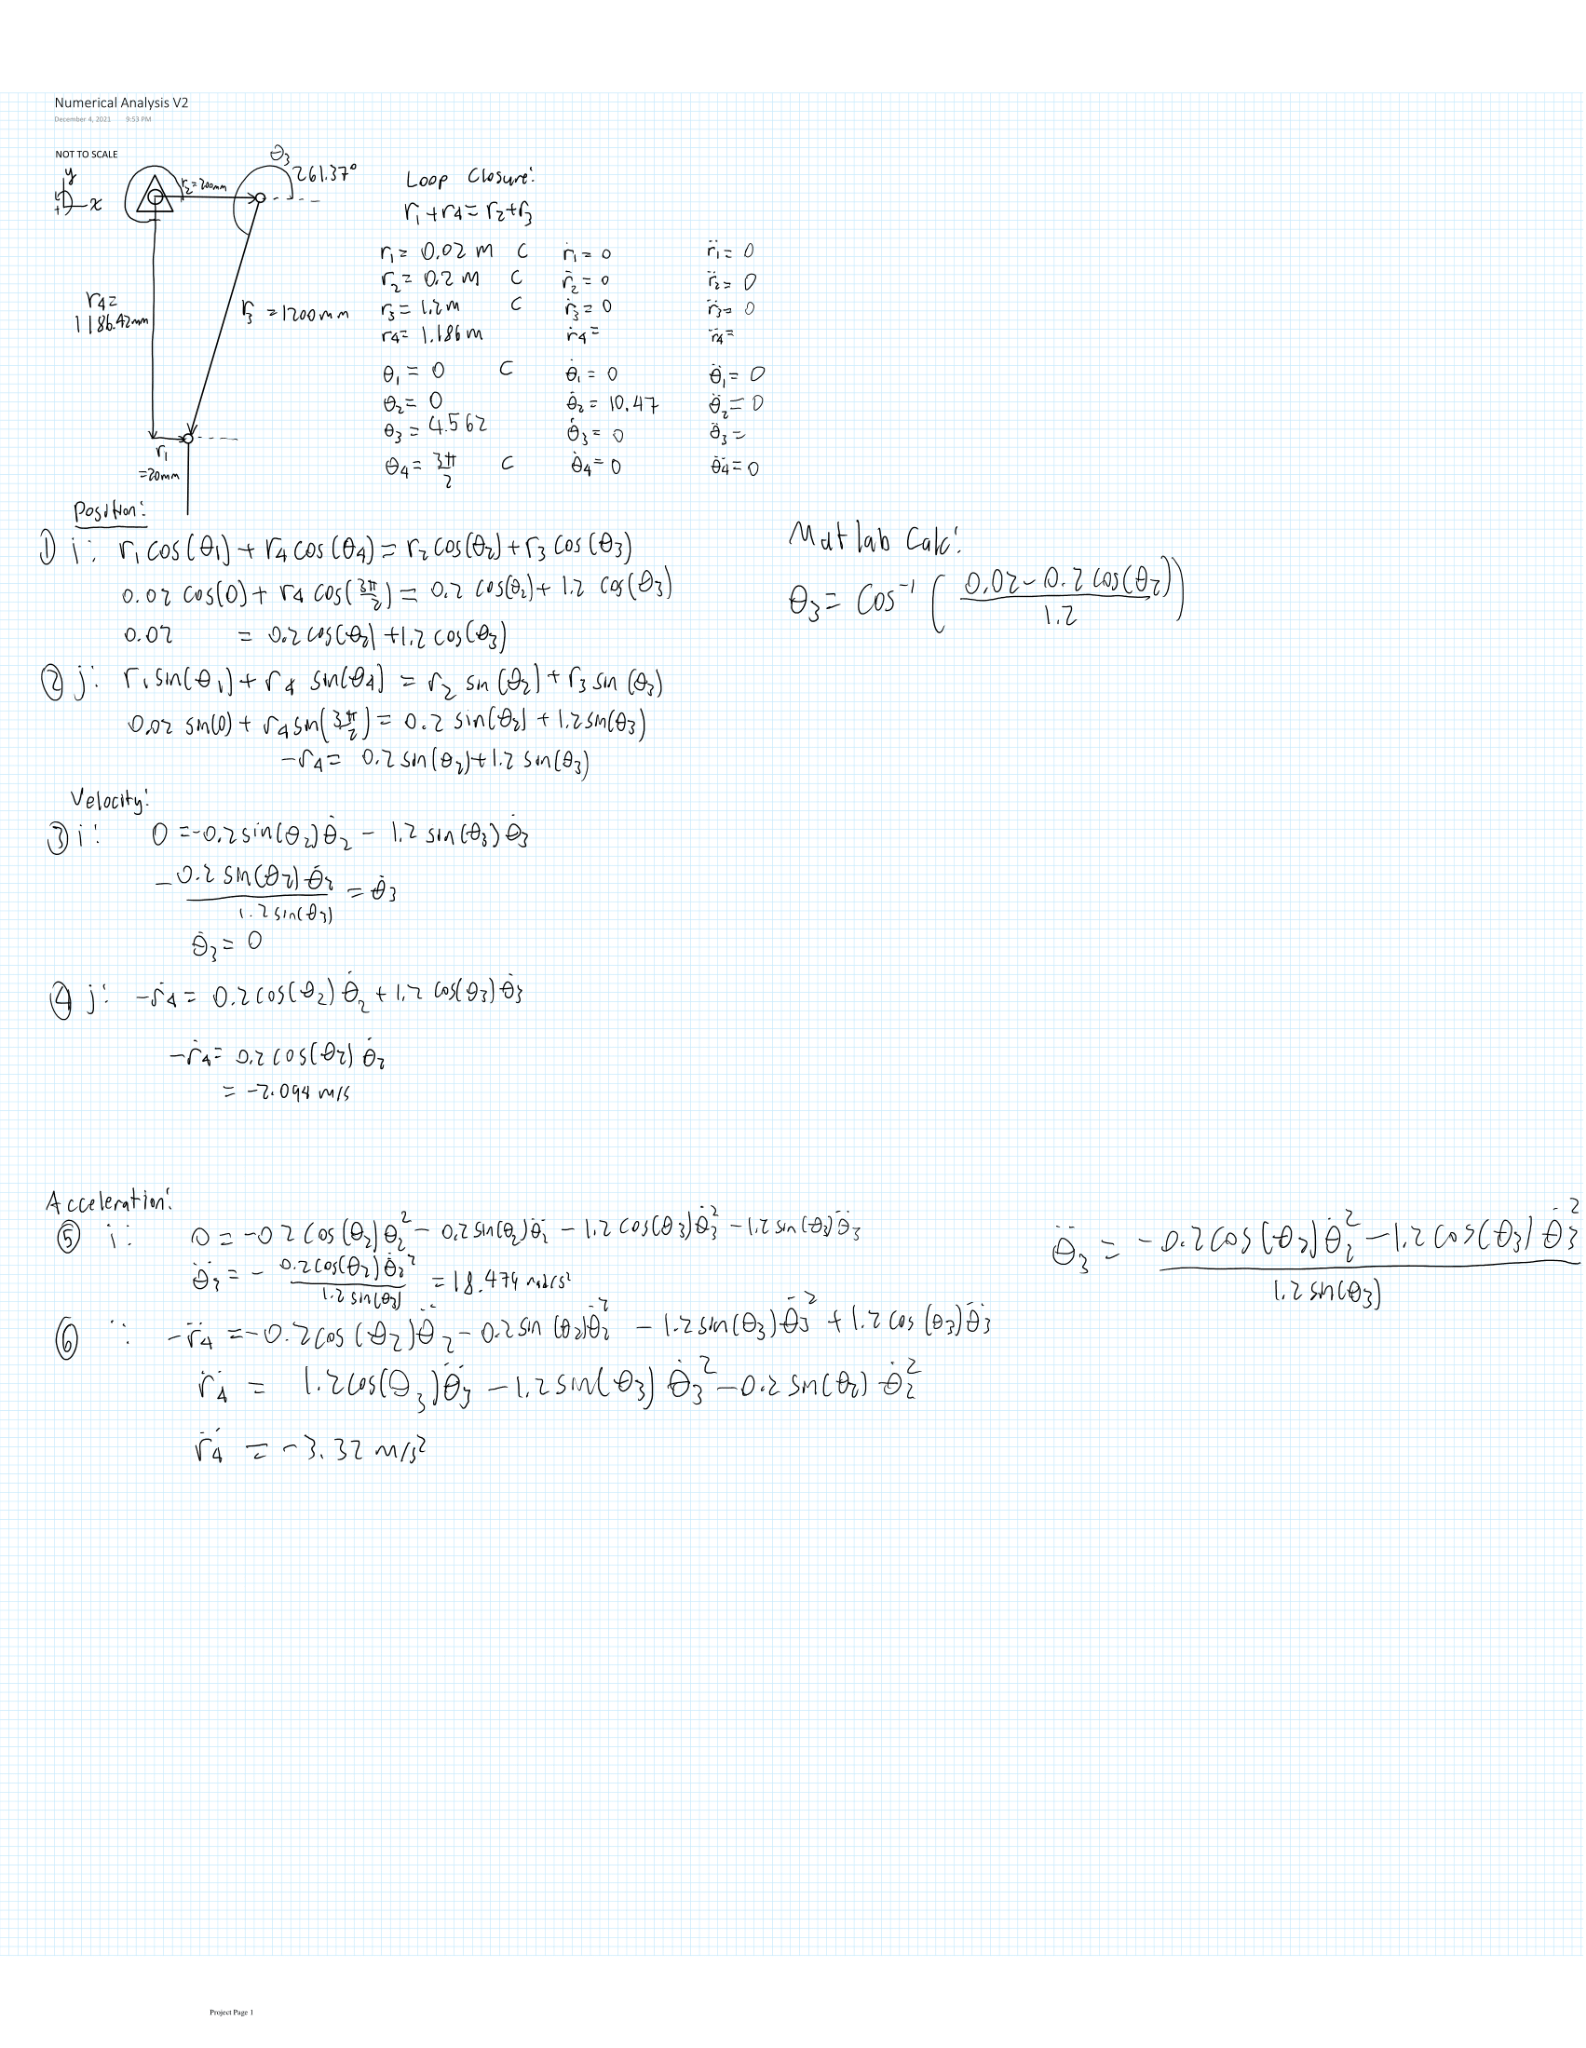 Numerical Analysis V2
December 4, 2021 9:53 PM
NOT TO SCALE
y
x
r₂=200mm
θ₃
261.37°
r₄=
1186.42mm
r₃ = 1200mm
r₁
=20mm
Loop Closure:
r₁+r₄=r₂+r₃
r₁= 0.02 m C ṙ₁= 0 r̈₁= 0
r₂= 0.2 m C ṙ₂= 0 r̈₂= 0
r₃= 1.2m C ṙ₃= 0 r̈₃= 0
r₄= 1.186m ṙ₄= r̈₄=
θ₁ = 0 C θ̇₁ = 0 θ̈₁= 0
θ₂= 0 θ̇₂ = 10.47 θ̈₂= 0
θ₃ = 4.562 θ̇₃ = 0 θ̈₃ =
θ₄= 3π/2 C θ̇₄=0 θ̈₄=0
Position:
① i: r₁cos(θ₁) + r₄cos(θ₄) = r₂cos(θ₂) + r₃cos(θ₃)
0.02 cos(0) + r₄ cos(3π/2) = 0.2 cos(θ₂) + 1.2 cos(θ₃)
0.02 = 0.2cos(θ₂) + 1.2cos(θ₃)
② j: r₁sin(θ₁) + r₄ sin(θ₄) = r₂ sin(θ₂) + r₃ sin(θ₃)
0.02 sin(0) + r₄sin(3π/2) = 0.2 sin(θ₂) + 1.2sin(θ₃)
-r₄= 0.2sin(θ₂)+1.2 sin(θ₃)
Matlab Calc:
θ₃= cos⁻¹ ( (0.02-0.2cos(θ₂)) / 1.2 )
Velocity:
③ i: 0 =-0.2sin(θ₂)θ̇₂ - 1.2sin(θ₃)θ̇₃
- 0.2 sin(θ₂)θ̇₂ / 1.2sin(θ₃) = θ̇₃
θ̇₃= 0
④ j: -ṙ₄= 0.2cos(θ₂)θ̇₂ + 1.2 cos(θ₃)θ̇₃
-ṙ₄= 0.2cos(θ₂)θ̇₂
= -2.094 m/s
Acceleration:
⑤ i: 0 = -0.2cos(θ₂)θ̇₂² - 0.2sin(θ₂)θ̈₂ - 1.2cos(θ₃)θ̇₃² - 1.2sin(θ₃)θ̈₃
θ̈₃ = - 0.2cos(θ₂)θ̇₂² / 1.2sin(θ₃) = 18.474 rad/s²
θ̈₃ = -0.2cos(θ₂)θ̇₂² - 1.2cos(θ₃)θ̇₃² / 1.2sin(θ₃)
⑥ -r̈₄ = -0.2cos(θ₂)θ̈₂ - 0.2sin(θ₂)θ̇₂² - 1.2sin(θ₃)θ̇₃² + 1.2cos(θ₃)θ̈₃
r̈₄ = 1.2cos(θ₃)θ̈₃ - 1.2sin(θ₃)θ̇₃² - 0.2sin(θ₂)θ̇₂²
r̈₄ = -3.32 m/s²
Project Page 1